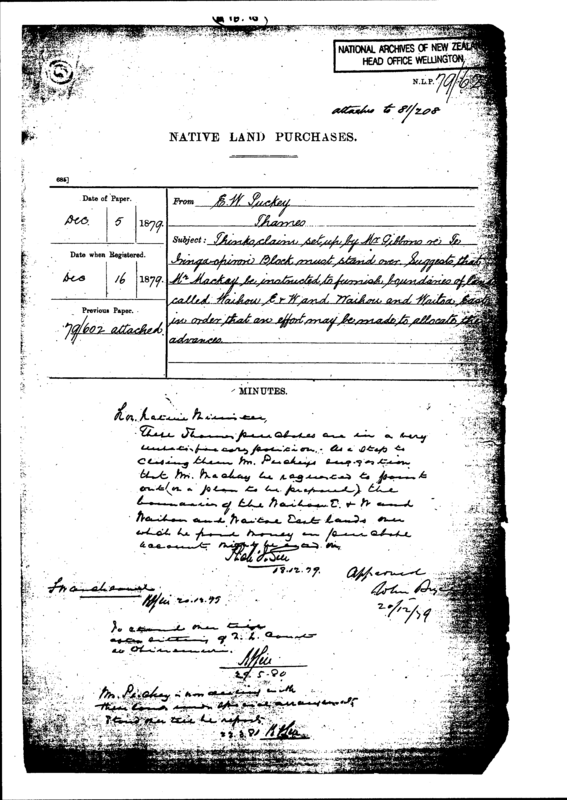 NATIONAL ARCHIVES OF NEW ZEALAN
HEAD OFFICE WELLINGTON
N.L.P. 79/
attaches to 81/208
NATIVE LAND PURCHASES.
Date of Paper.
Dec. 5 1879.
Date when Registered.
Dec 16 1879.
Previous Paper.
79/602 attached
From E. W. Puckey
Thames
Subject: Thinks claim set up by Mrs Gibbons re Te
Block must stand over. Suggests that
Mr Mackay be instructed to furnish boundaries of land
called Waihou E & W and Waihou and Waitoa East
in order that an effort may be made to allocate the
advances.
MINUTES.
Hon. Native Minister,
These Thames purchases are in a very
unsatisfactory position. As a step to
closing them Mr. Puckey's suggestion
that Mr. Mackay be requested to point
out (on a plan to be prepared) the
boundaries of the Waihou E. & W and
Waihou and Waitoa East lands over
which he paid money on purchase
account, might be
18.12.79.
Approved
John
20/12/79
20.12.79
To stand over
sitting of N. L. Court
at Ohinemuri.
29.5.80
Mr. Puckey is now dealing with
these lands under special arrangement
Stand over till he reports
22.3.81